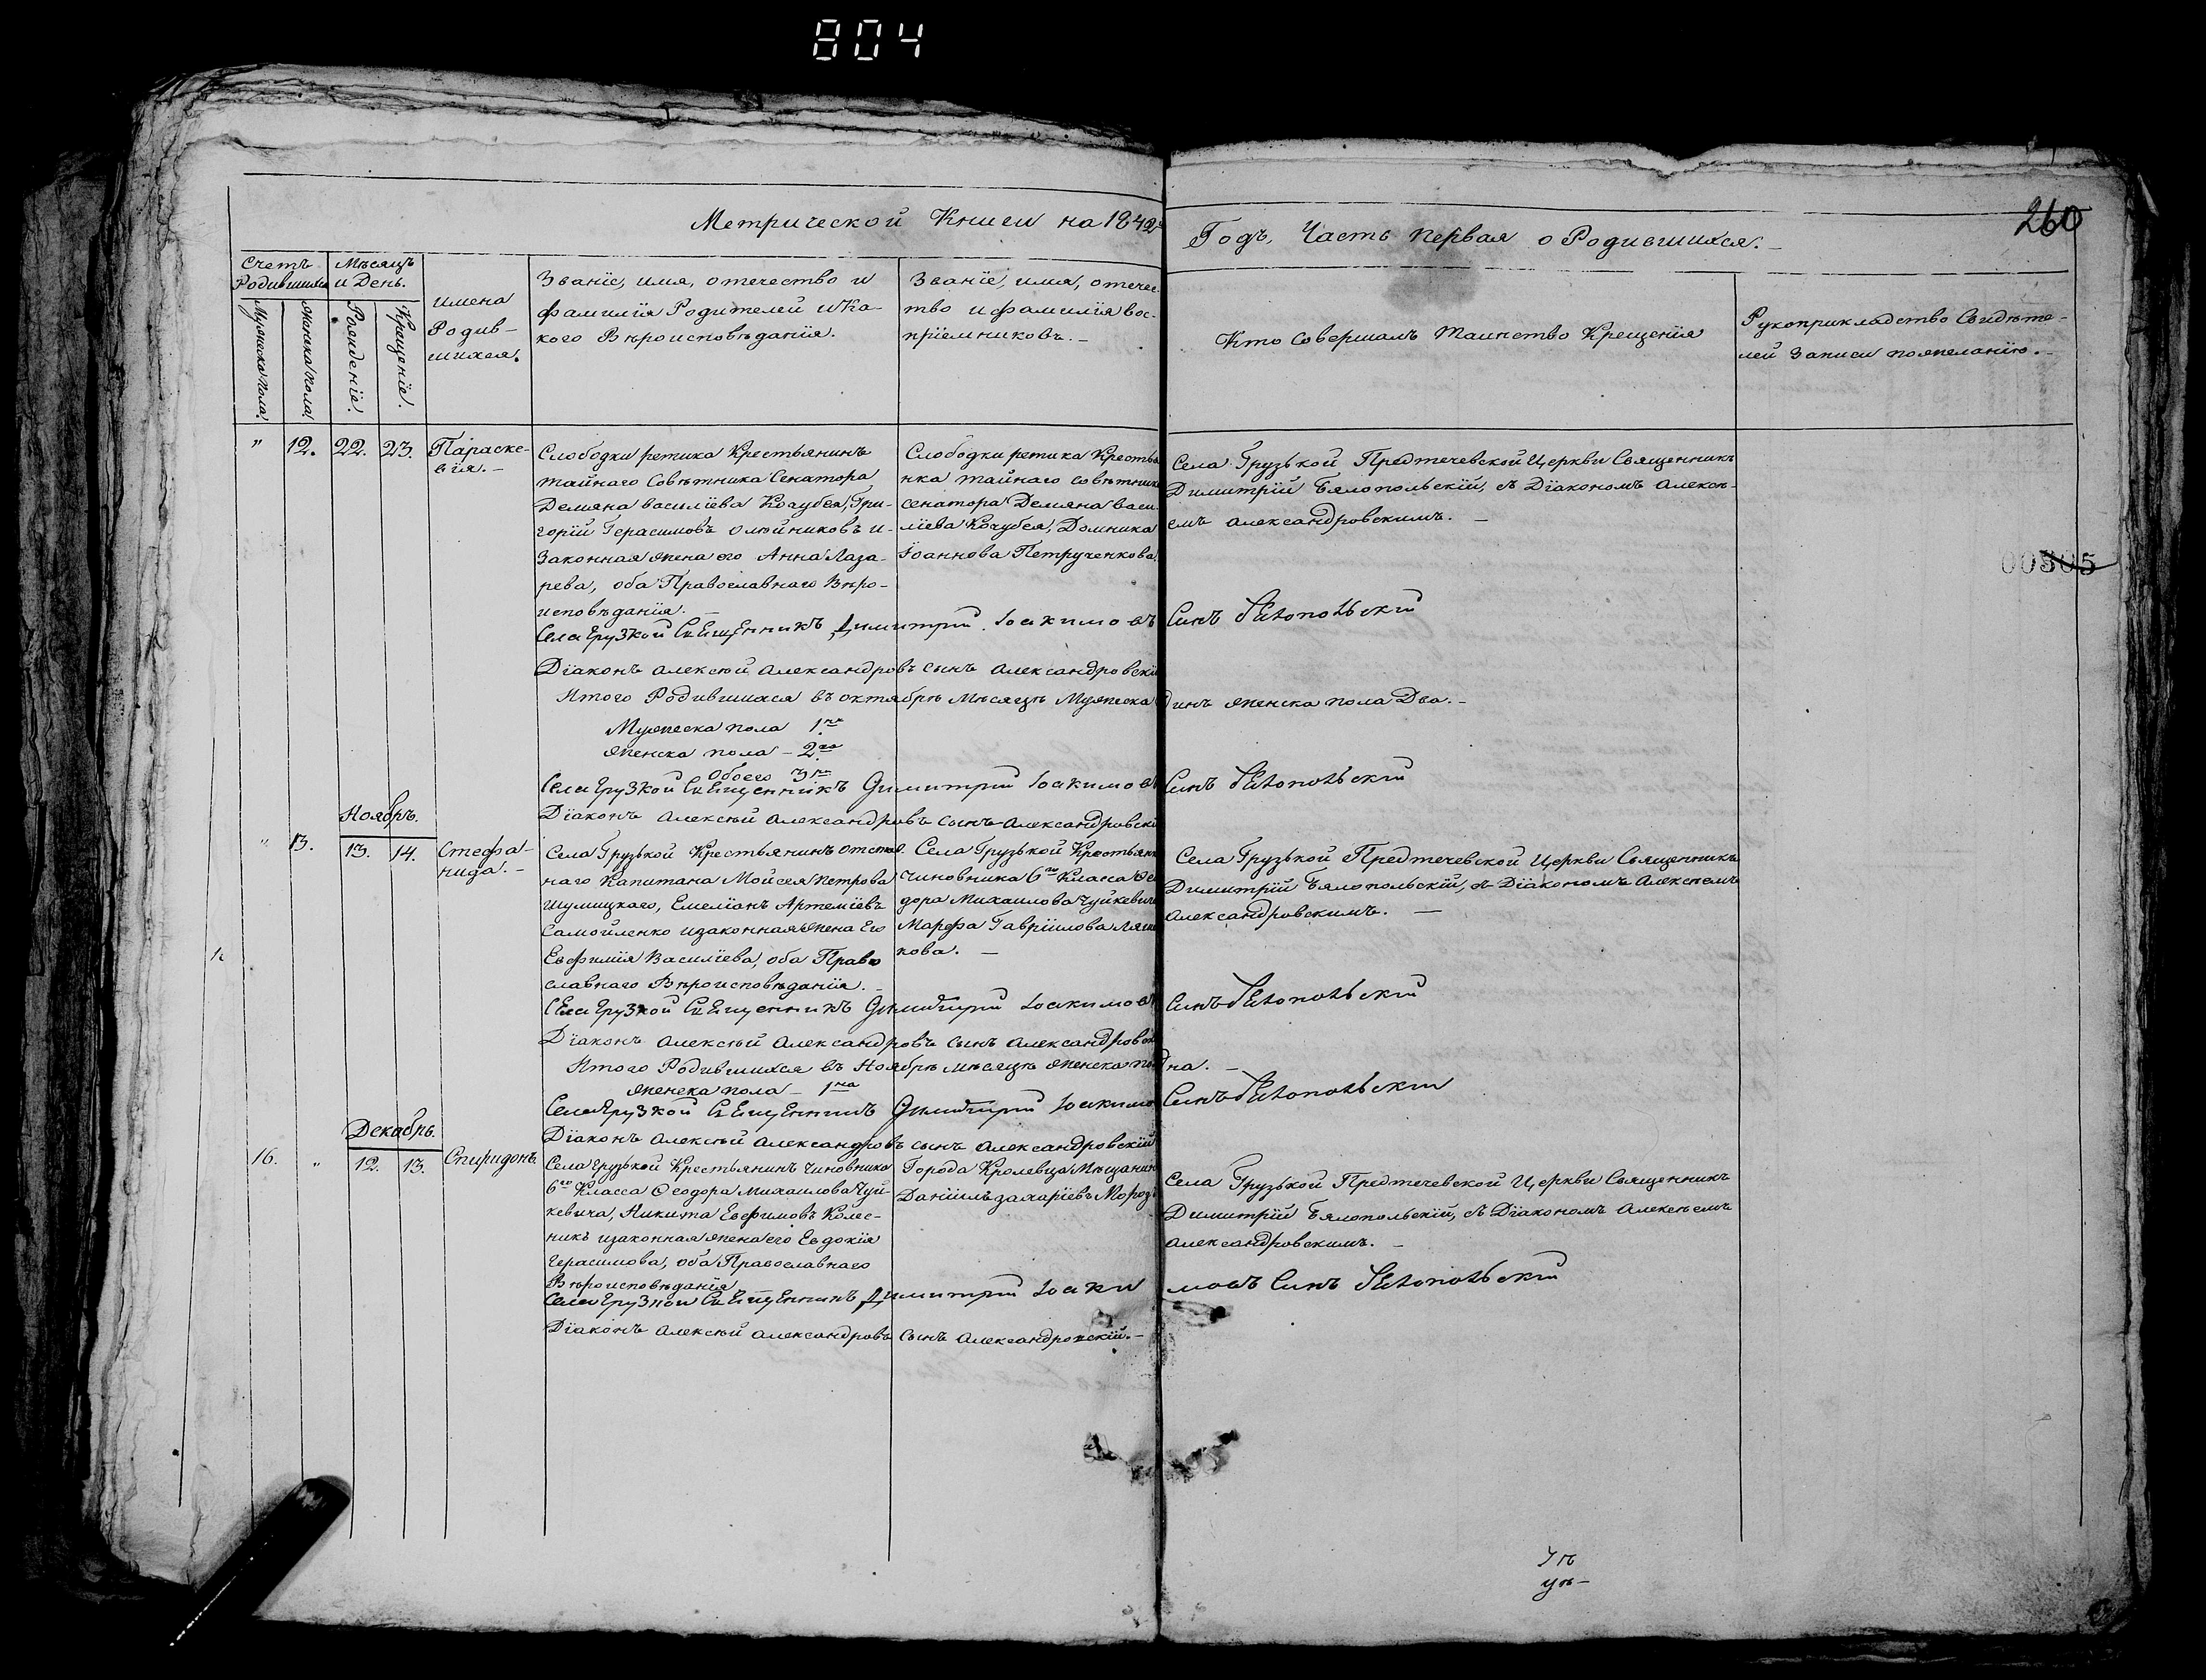 804
Метрической Книги на 1842й
Годъ, Часть первая о Родившихся.
260
Счетъ Родившихся
Мужеска пола.
Женска пола.
Мѣсяцъ и День.
Рожденіе.
Крещеніе.
имена
Родив-
шихся.
Званіе, имя, отечество и
фамилія Родителей и Ка-
кого Вѣроисповѣданія.
Званіе, имя, отечес-
тво и фамилія вос-
пріемниковъ.
Кто совершалъ таинство Крещенія
Рукоприкладство Свидѣте-
лей Записи по желанію.
" 12. 22. 23.
Параске-
вія.
Слободки ретика Крестьянинъ
тайнаго Совѣтника Сенатора
Демяна василіева Кочубея, Гри-
горій Герасимовъ Олюйниковъ и
Законная жена его Анна Лаза-
рева, оба Православнаго Вѣро-
исповѣданія.
Слободки ретика Крестья
нка тайнаго совѣтника
сенатора Демяна васи-
ліева Кочубея, Домника
Іоаннова Петрученкова.
Села Грузькой Предтечевской Церкви Священникъ
Димитрій Бялопольскій, съ Діакономъ Алексѣ-
емъ Александровскимъ.
00805
Села Грузкой Священникъ Димитрий Іоакимовъ Синъ Бялопольский
Діаконъ Алексѣй Александровъ сынъ Александровскі
Итого Родившихся въ октябрѣ Мѣсяцѣ Мужеска динъ женска пола Два.
Мужеска пола 1
женска пола - 2
Обоего 3
Села Грузкой Священникъ Димитрий Іоакимовъ Синъ Бялопольский
Діаконъ Алексѣй Александровъ сынъ Александровскі
Ноябрь.
" 13. 13. 14.
Стефа-
нида.
Села Грузькой Крестьянинъ отстав.
наго Капитана Мойсея Петрова
Шумицкаго, Емеліанъ Артеміевъ
Самойленко и законная жена Его
Евфимія Василіева, оба Право
славнаго Вѣроисповѣданія.
Села Грузькой Крестьянк
чиновника 6го Класа Фео
дора Михаилова Чуйкевича
Марфа Гавріилова
кова.
Села Грузькой Предтечевской Церкви Священникъ
Димитрій Бялопольскій, съ Діакономъ Алексѣемъ
Александровскимъ.
Села Грузкой Священникъ Димитрий Іоакимовъ Синъ Бялопольский
Діаконъ Алексѣй Александровъ сынъ Александровск
Итого Родившихся въ Ноябрѣ мѣсяцѣ женска по на.
женска пола - 1
Села Грузкой Священникъ Димитрий Іоакимо Синъ Бялопольский
Діаконъ Алексѣй Александровъ сынъ Александровскій
Декабрь.
16. " 12. 13.
Спиридонъ
Села Грузькой Крестьянинъ чиновника
6го Класса Феодора Михаилова Чуй-
кевича, Никита Евфимовъ Колес-
никъ и законная жена его Евдокія
Герасимова, оба Православнаго
Вѣроисповѣданія
Города Кролевца Мѣщанин
Даніилъ захаріевъ Мороз
Села Грузькой Предтечевской Церкви Священникъ
Димитрій Бялопольскій, съ Діакономъ Алексѣемъ
Александровскимъ.
Села Грузкой Священникъ Димитрий Іоаки мовъ Синъ Бялопольский
Діаконъ Алексѣй Александровъ сынъ Александровскій.